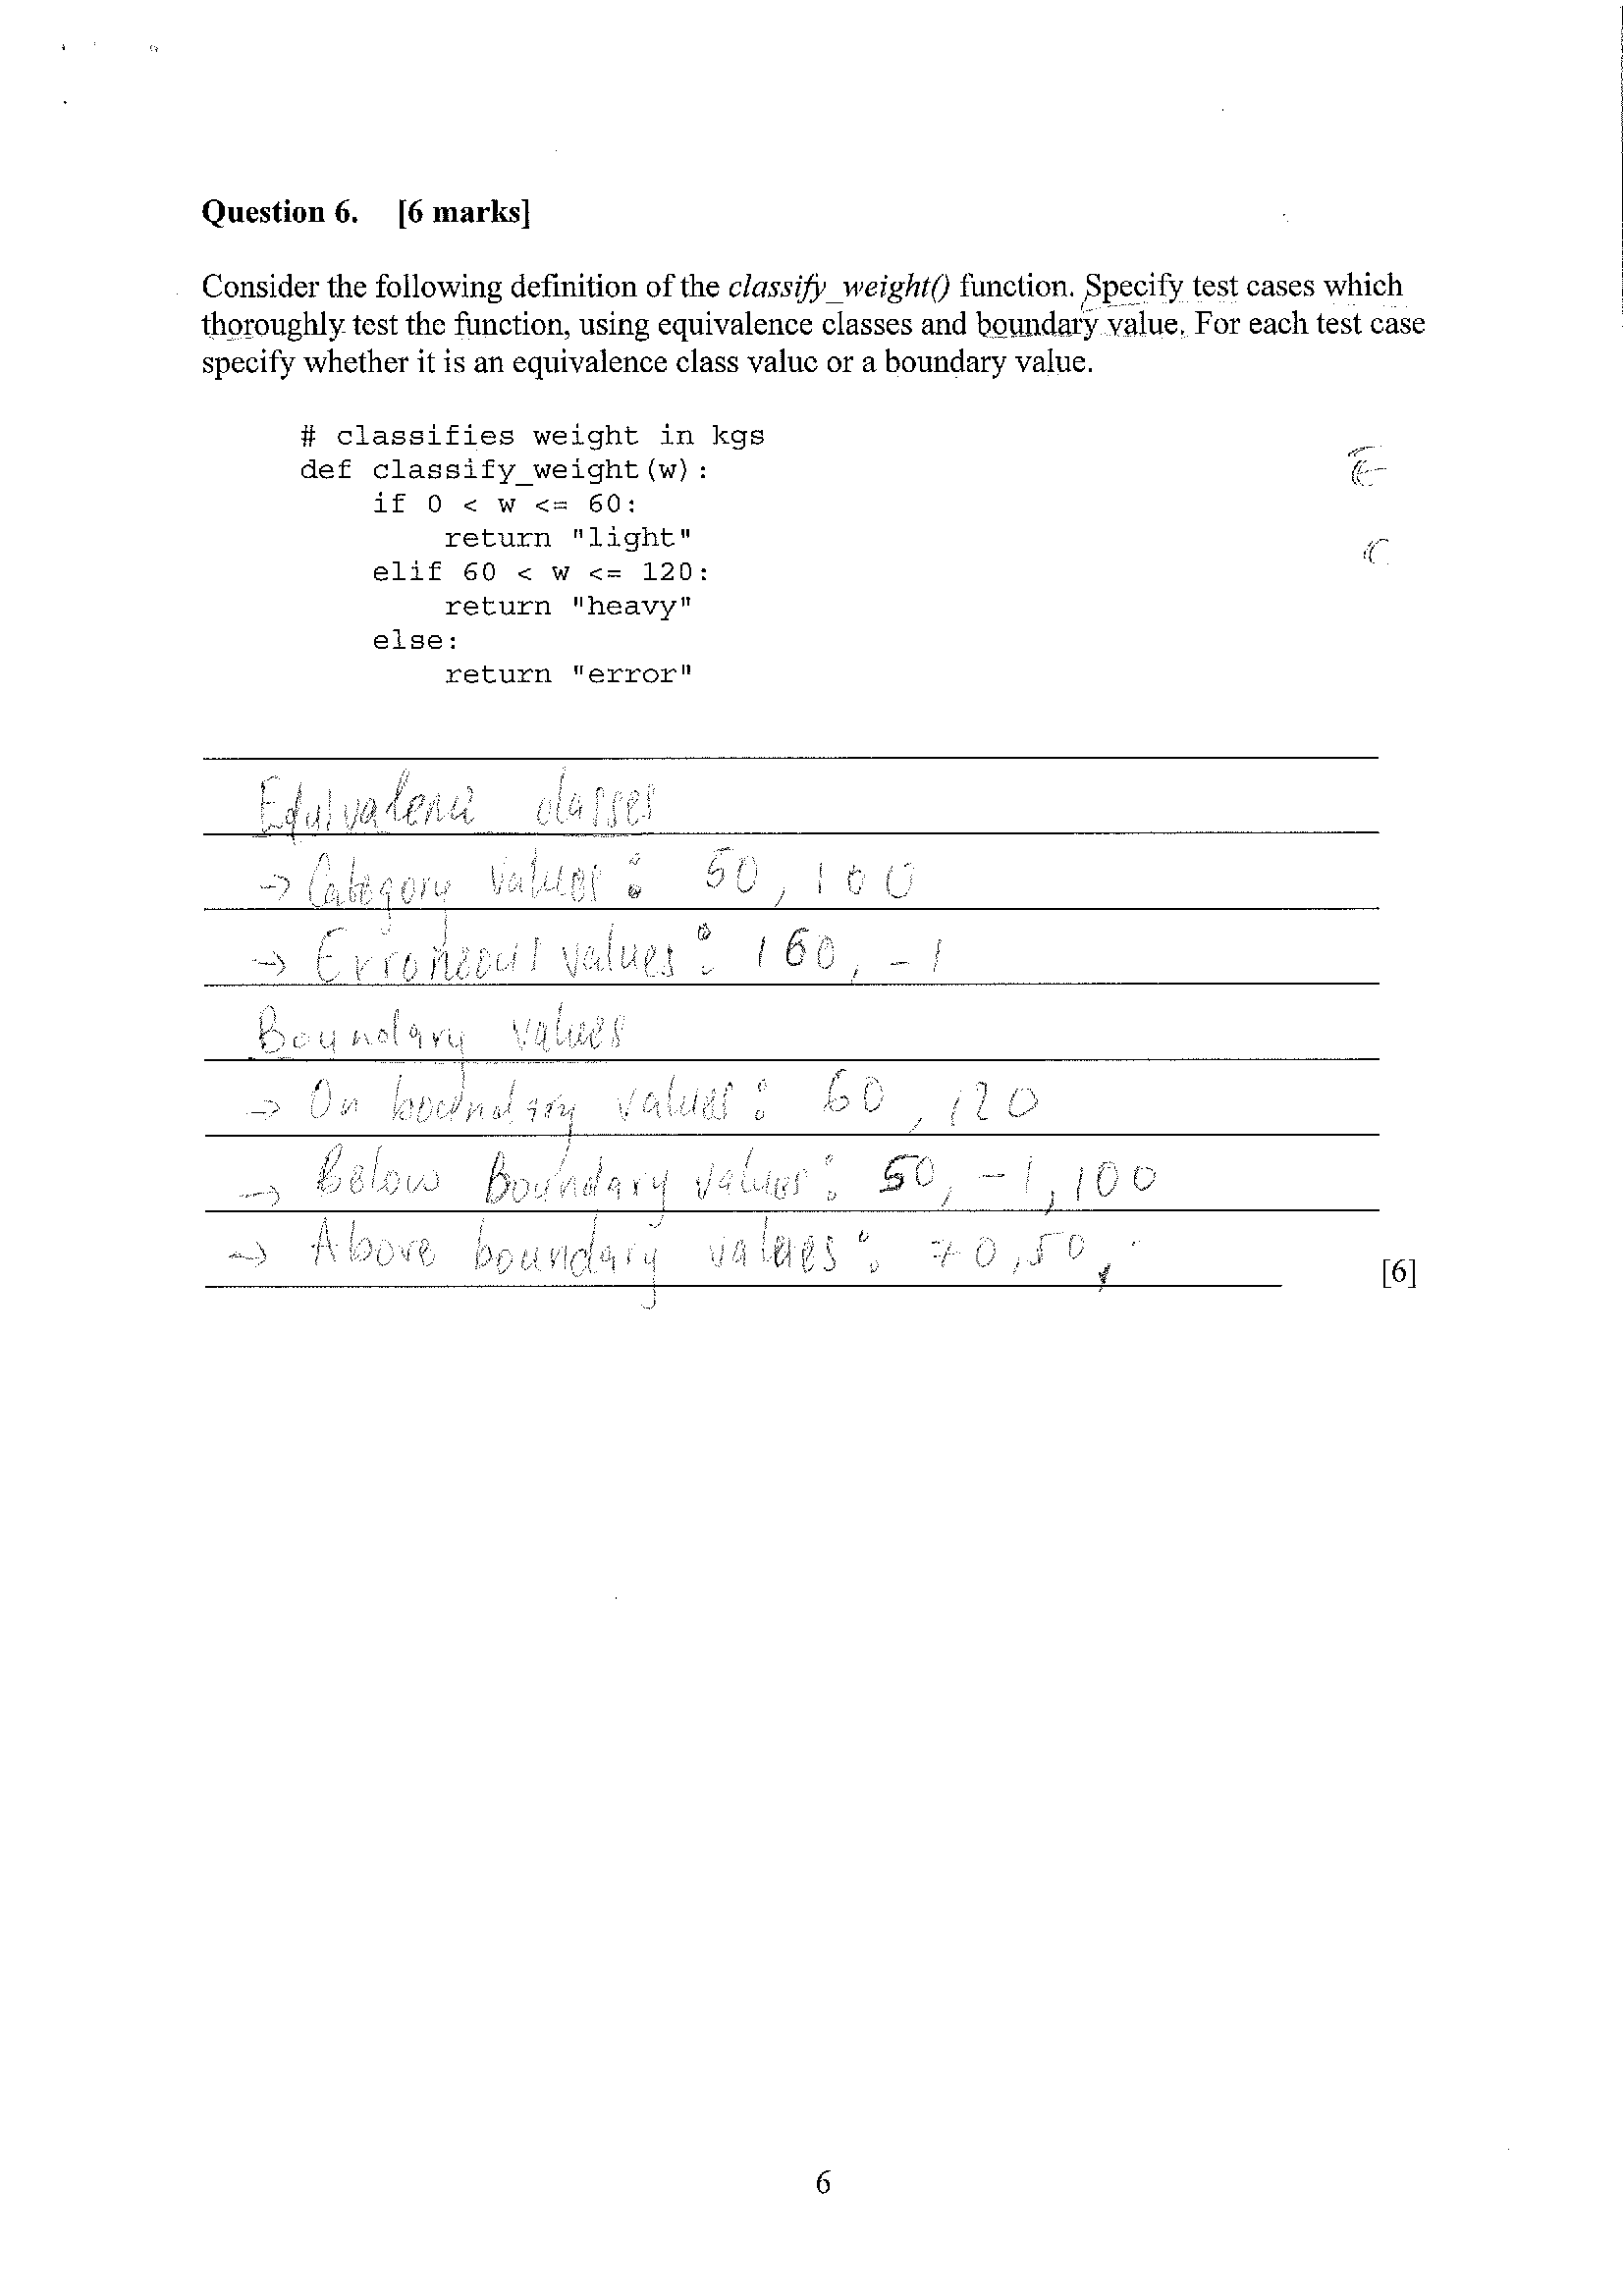 Question 6. [6 marks]
Consider the following definition of the classify_weight() function. Specify test cases which
thoroughly test the function, using equivalence classes and boundary value. For each test case
specify whether it is an equivalence class value or a boundary value.
# classifies weight in kgs
def classify_weight(w):
    if 0 < w <= 60:
        return "light"
    elif 60 < w <= 120:
        return "heavy"
    else:
        return "error"
E
C
Equivalence classes
→ Category values : 50, 100
→ Erroneous values : 160, -1
Boundary values
→ On boundary values : 60, 120
→ Below Boundary values : 50, -1, 100
→ Above boundary values : 70, 50,
[6]
6